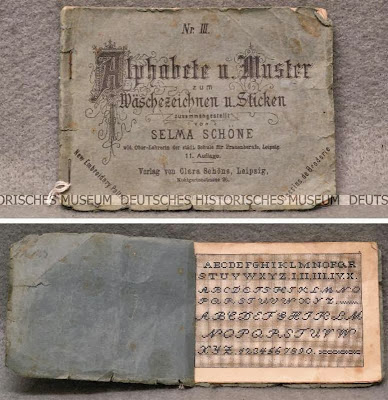 Nr. III.
Alphabete u. Muster
zum
Wäschezeichnen u. Sticken
zusammengestellt
von
SELMA SCHÖNE
11. Auflage.
Verlag von Clara Schöne, Leipzig,
New Embroidery
HISTORISCHES MUSEUM DEUTSCHES HISTORISCHES MUSEUM DEUTSCHES
A B C D E F G H I K L M N O P Q R
S T U V W X Y Z. I. II. III. IV. V. X.
A B C D E F G H I K L M N O
P Q R S T U V W X Y Z.
A B C D E F G H I K L M
N O P Q R S T U V W
X Y Z. 1 2 3 4 5 6 7 8 9 0.